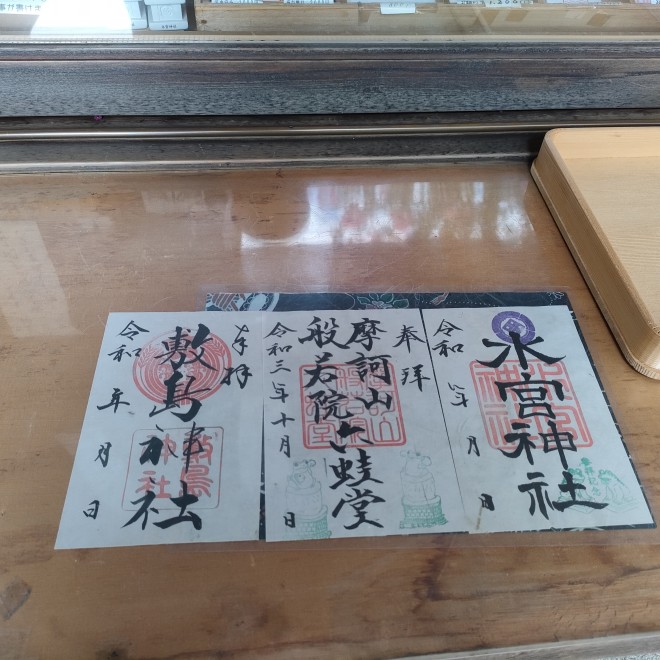 水宮神社
令和
年
月
日
奉拝
摩訶山
般若院六蛙堂
令和三年十月
日
奉拝
敷島神社
令和
年
月
日
敷島
神社